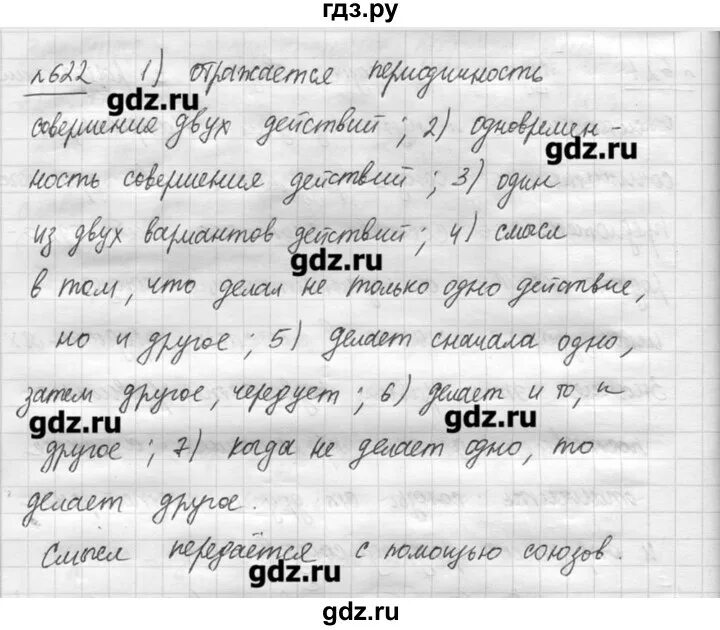 гдз.ру
№622 1) отражается периодичность
gdz.ru
совершение двух действий; 2) одновремен-
gdz.ru
ность совершения действий; 3) один
из двух вариантов действий; 4) смысл
gdz.ru
в том, что делал не только одно действие,
но и другое; 5) делает сначала одно,
затем другое, чередует; 6) делает и то, и
gdz.ru
gdz.ru
другое; 7) когда не делает одно, то
делает другое.
Смысл передаётся с помощью союзов.
gdz.ru
gdz.ru